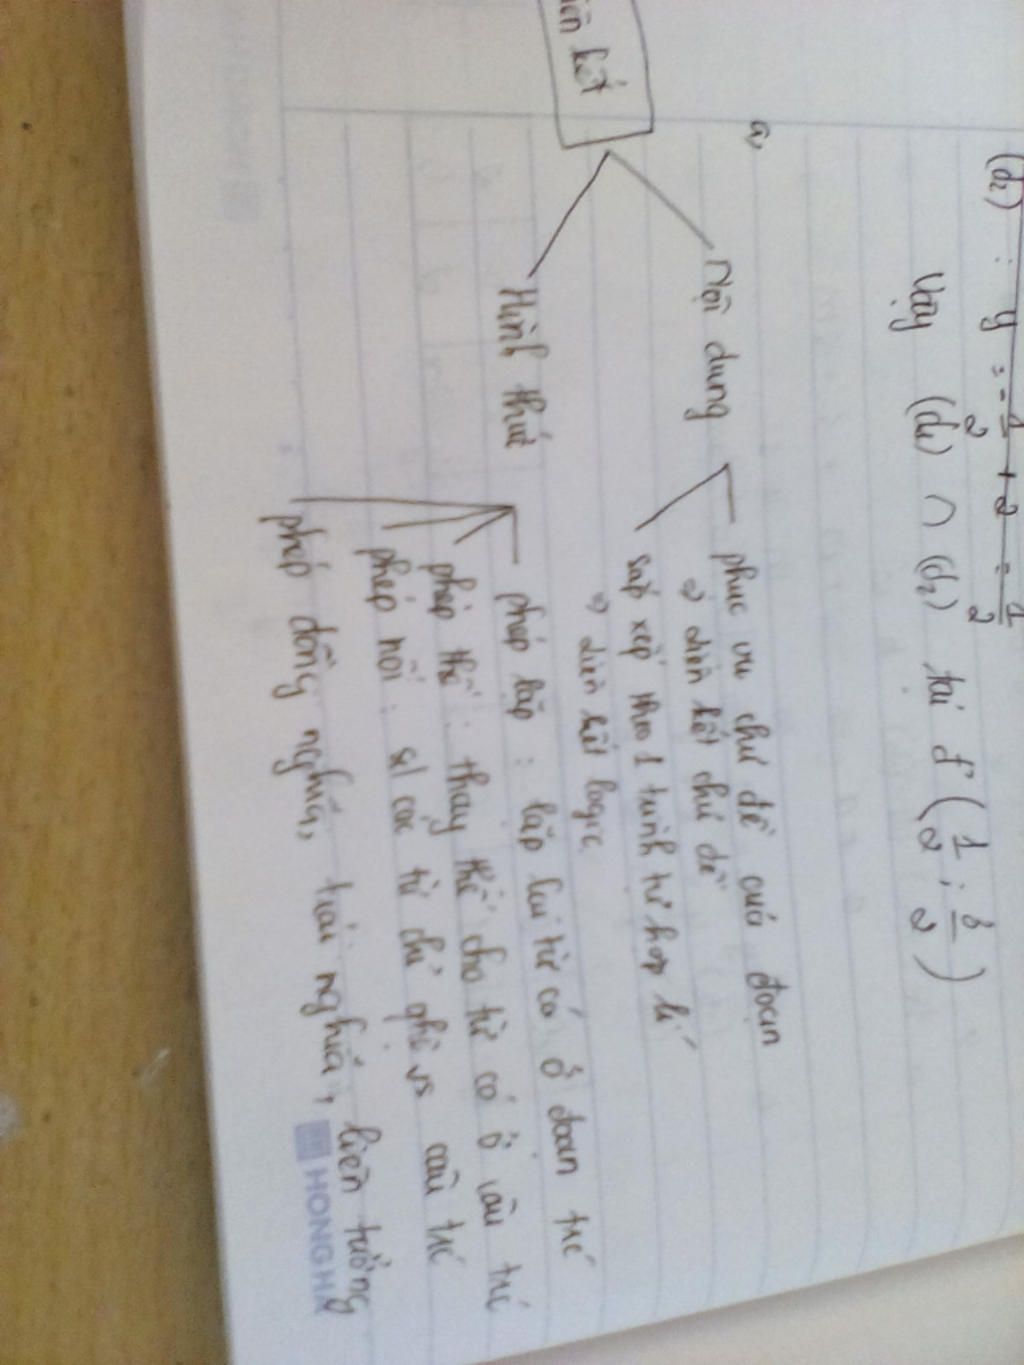 (d₂) : y = -1/2 + 2 = 1/2
Vậy (d₁) ∩ (d₂) tại đ (1/2 ; 3/2)
a,
kết
Nội dung
phục vụ chủ đề của đoạn
=> liên kết chủ đề
sắp xếp theo 1 trình tự hợp lí
=> liên kết logic
Hình thức
phép lặp : lặp lại từ có ở đoạn trc
phép thế : thay thế cho từ có ở câu trc
phép nối : sd các từ chỉ qhệ vs câu trc
phép đồng nghĩa, trái nghĩa, liên tưởng
HONG HA